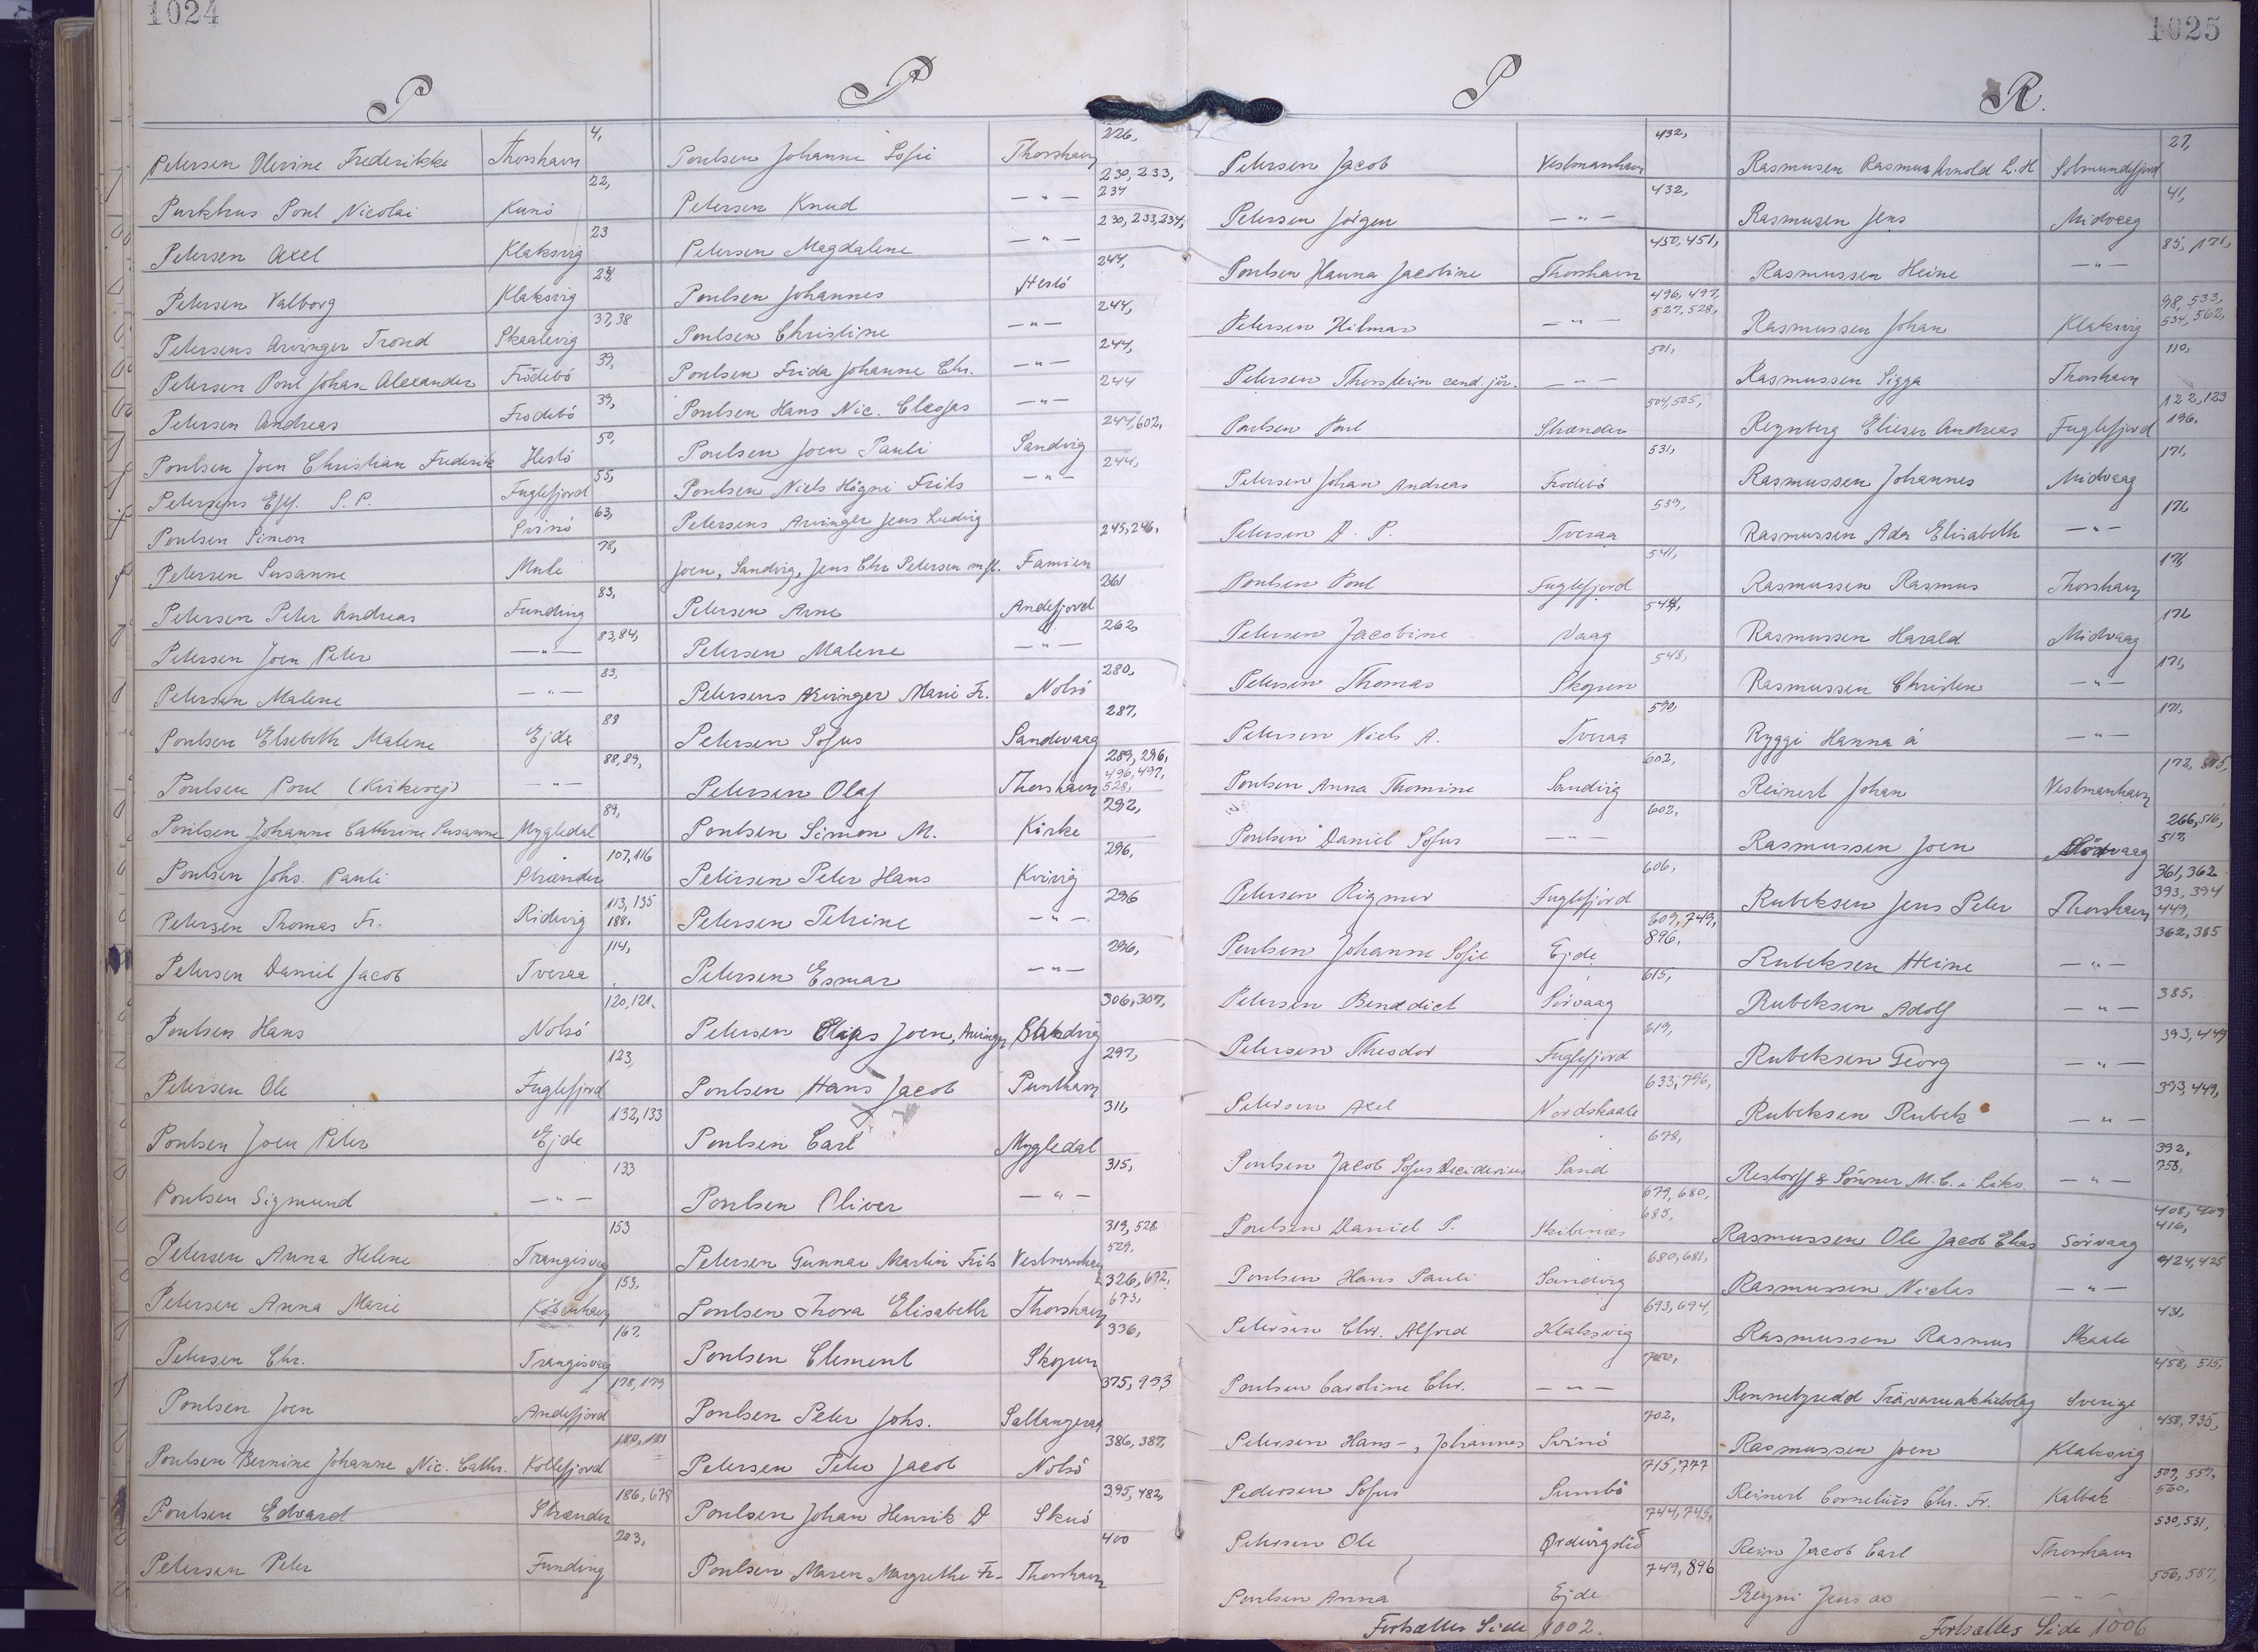 1024
P
Petersen Olevine Frederikke Thorshavn 4,
Purkhus Poul Nicolai Kunö 22,
Petersen Axel Klaksvig 23
Petersen Valborg Klaksvig 24
Petersens Arvinger Trond Skaalevig 37,38
Petersen Poul Johan Alexander Frödebö 39,
Petersen Andreas Frodebö 39,
Poulsen Joen Christian Frederik Hestö 50,
Petersens Eftf. S. P. Fuglefjord 55,
Poulsen Simon Svinö 63,
Petersen Susanne Mule 78,
Petersen Peter Andreas Funding 83,
Petersen Joen Peter — " — 83,84,
Petersen Malene — " — 83,
Poulsen Elsebeth Malene Ejde 88
Poulsen Poul (Kirkevej) — " — 88,89,
Poulsen Johanne Cathrine Susanne Mygledal 89,
Poulsen Johs. Pauli Strænder 107,116
Petersen Thomas Fr. Ridevig 113,135
188.
Petersen Daniel Jacob Tveraa 114,
Poulsen Hans Nolsö 120,121.
Petersen Ole Fuglefjord 123,
Poulsen Joen Peter Ejde 132,133
Poulsen Sigmund — " — 133
Petersen Anna Helene Trangisvaag 153
Petersen Anna Marie Köbenhavn 153.
Petersen Chr. Trangisvaag 167
Poulsen Joen Andefjord 178,179
Poulsen Bernine Johanne Nic. Cathr. Kollefjord 180,181
Poulsen Edvard Strænder 186,678
Petersen Peter Funding 203,
P
Poulsen Johanne Sofie Thorshavn 226,
Petersen Knud — " — 230,233,
234
Petersen Magdalene — " — 230,233,234,
Poulsen Johannes Hestö 244,
Poulsen Christine — " — 244,
Poulsen Frida Johanne Chr. — " — 244,
Poulsen Hans Nic. — " — 244
Poulsen Joen Pauli Sandvig 244,602,
Poulsen Niels Högni Frits — " — 244,
Petersens Arvinger Jens Ludvig
Joen, Sandvig, Jens Chr Petersen mfl. Famien 245,246,
Petersen Arne Andefjord 261
Petersen Malene — " — 262,
Petersens Arvinger Marie Fr. Nolsö 280,
Petersen Sofus Sandevaag 287,
Petersen Olaf Thorshavn 289,296,
496,497,
528,
Poulsen Simon M. Kirke 292,
Petersen Peter Hans Kvivig 296,
Petersen Petrine — " — 296
Petersen Esmar — " — 296,
Petersen Joen, Arvinger Sandvig 306,307,
Poulsen Hans Jacob Punthavn 297,
Poulsen Carl Mygledal 311,
Poulsen Oliver — " — 315,
Petersen Gunnar Martin Frits Vestmanhavn 319,528
529.
Poulsen Thora Elisabeth Thorshavn 326,672,
673,
Poulsen Clement Skopun 336,
Poulsen Peter Johs. Saltangeraa 375,953
Petersen Peter Jacob Nolsö 386,387,
Poulsen Johan Henrik D Skuö 395,482,
Poulsen Maren Margrethe Fr. Thorshavn 400
1025
P
Petersen Jacob Vestmanhavn 432,
Petersen Jörgen — " — 432,
Poulsen Hanna Jacobine Thorshavn 450,451,
Petersen Hilmar — " — 496,497,
527,528,
Petersen Thorstein cand. jur. — " — 501,
Poulsen Poul Strænder 504,505,
Petersen Johan Andreas Frodebö 531,
Petersen D. P. Tveraa 539,
Poulsen Poul Fuglefjord 541,
Petersen Jacobine Vaag 544,
Petersen Thomas Skopun 548,
Petersen Niels A. Tveraa 590,
Poulsen Anna Thomine Sandvig 602,
Poulsen Daniel Sofus — " — 602,
Petersen Rigmor Fuglefjord 606,
Poulsen Johanne Sofie Ejde 609,749,
896.
Petersen Benedict Sörvaag 615,
Petersen Theodor Fuglefjord 619,
Petersen Axel Nordskaale 633,796,
Poulsen Jacob Sofus Deciderius Sand 678,
Poulsen Daniel P. Skibenæs 679,680,
685,
Poulsen Hans Pauli Sandvig 680,681,
Petersen Chr. Alfred Klaksvig 693,694,
Poulsen Caroline Chr. — " —
Petersen Hans-, Johannes Svinö 702,
Pedersen Sofus Sumbö 715,777
Petersen Ole Ördevigslid 744,745,
Poulsen Anna Ejde 749,896
Fortsættes Side 1002.
R.
Rasmusen Rasmus Arnold L. H Solmundefjord 27,
Rasmusen Jens Midvaag 41,
Rasmussen Heine — " — 85, 171,
Rasmussen Johan Klaksvig 98,533,
534,562,
Rasmussen Sigga Thorshavn 110,
Reynberg Elieser Andreas Fuglefjord 122,123
196.
Rasmussen Johannes Midvaag 171,
Rasmussen Ada Elisabeth — " — 171,
Rasmussen Rasmus Thorshavn 171,
Rasmussen Harald Midvaag 171,
Rasmussen Christen — " — 171,
Ryggi Hanna á — " — 171,
Reinert Johan Vestmanhavn 172,
Rasmussen Joen 266,516,
517,
Rubeksen Jens Peter Thorshavn 361,362
393,394
449,
Rubeksen Heine — " — 362,385
Rubeksen Adolf — " — 385,
Rubeksen Georg — " — 393,449
Rubeksen Rubek — " — 393,449,
Restorff & Sönner M. C. i Likv. — " — 392,
758,
Rasmussen Ole Jacob Elias Sörvaag 408,409
416,
Rasmussen Niclas — " — 424,425
Rasmussen Rasmus Skaale 431,
Ronnebyredd Trävaruaktiebolag Sverige 458, 515,
Rasmussen Joen Klaksvig 458,735,
Reinert Cornelius Chr. Fr. Kalbak 509,559,
560,
Rein Jacob Carl Thorshavn 530,531,
Reyni Jens ao — " — 556,557,
Fortsættes Side 1006